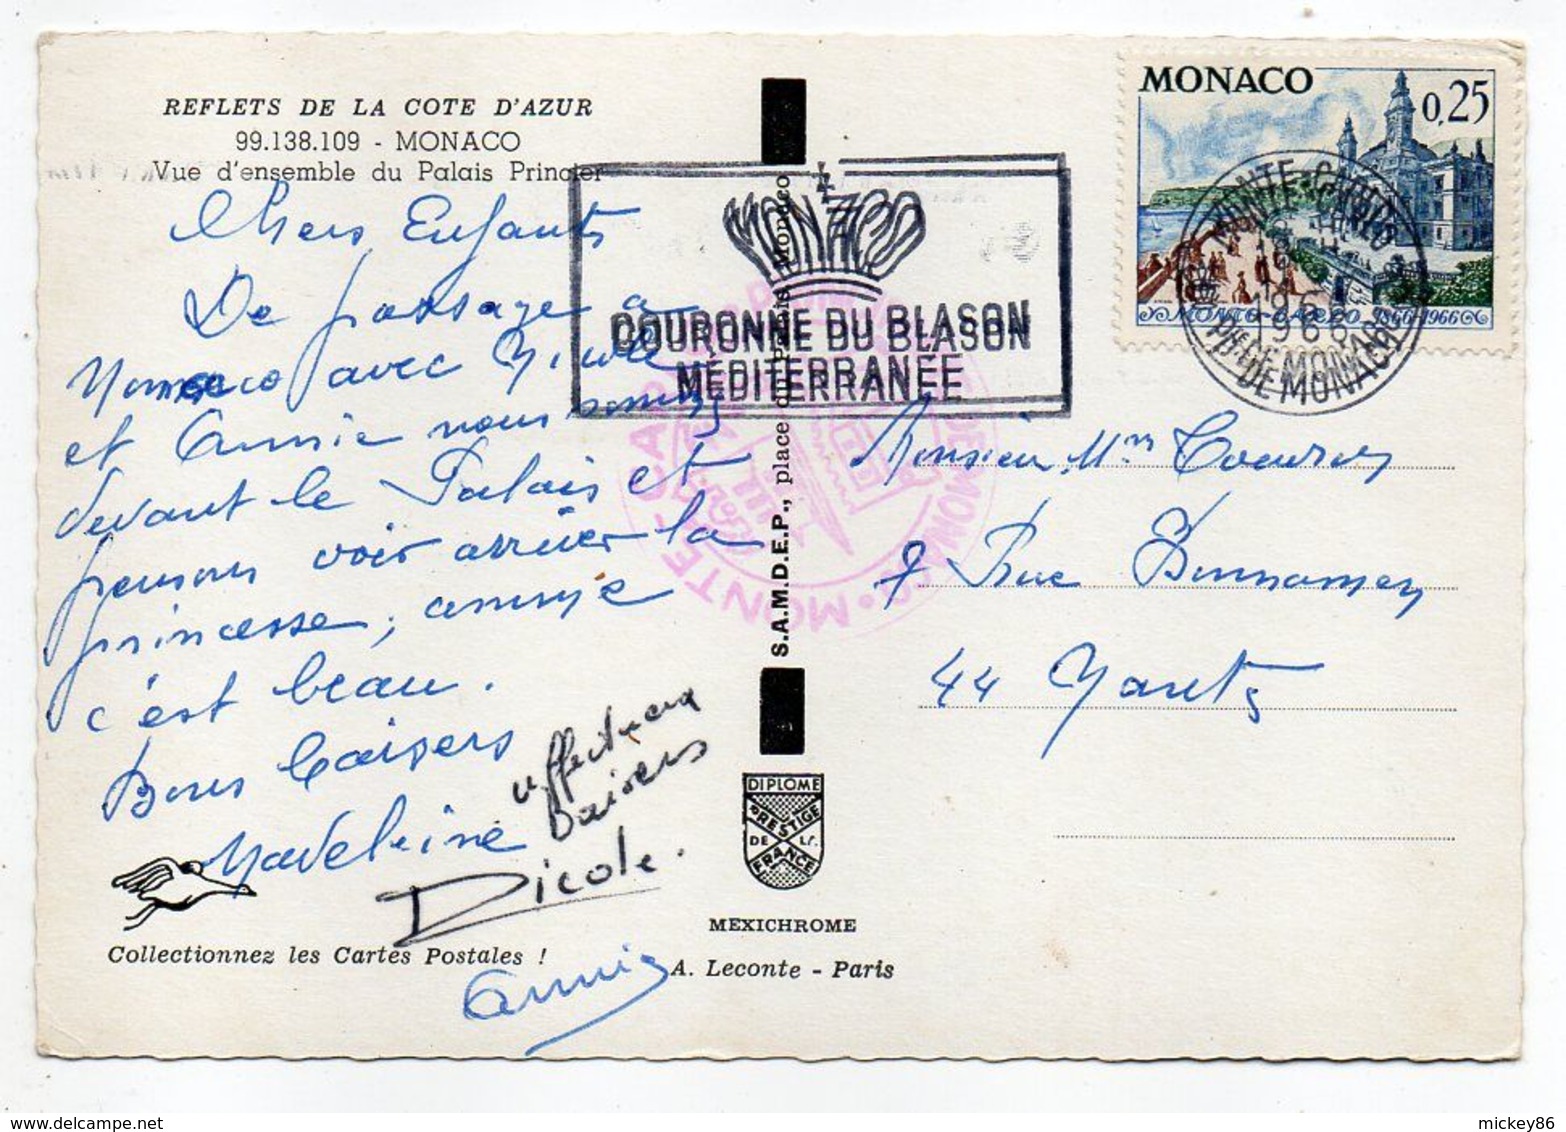 REFLETS DE LA COTE D'AZUR
99.138.109 - MONACO
Vue d'ensemble du Palais Princier
Chers Enfants
De passage à
Monaco avec Nicole
et Annie nous sommes
devant le Palais et
pensons voir arriver la
princesse,
c'est beau.
Bons baisers
Madeleine
Baisers
Nicole.
Annie
Collectionnez les Cartes Postales !
S.A.M.D.E.P., place du Palais Monaco
DIPLOME
PRESTIGE
DE LA
FRANCE
MEXICHROME
A. Leconte - Paris
MONACO
COURONNE DU BLASON
MÉDITERRANÉE
MONACO
0,25
MONTE-CARLO 1866-1966
MONTE-CARLO
1966
PTÉ DE MONACO
Monsieur Mme
7 Rue
44 Nantes
mickey86